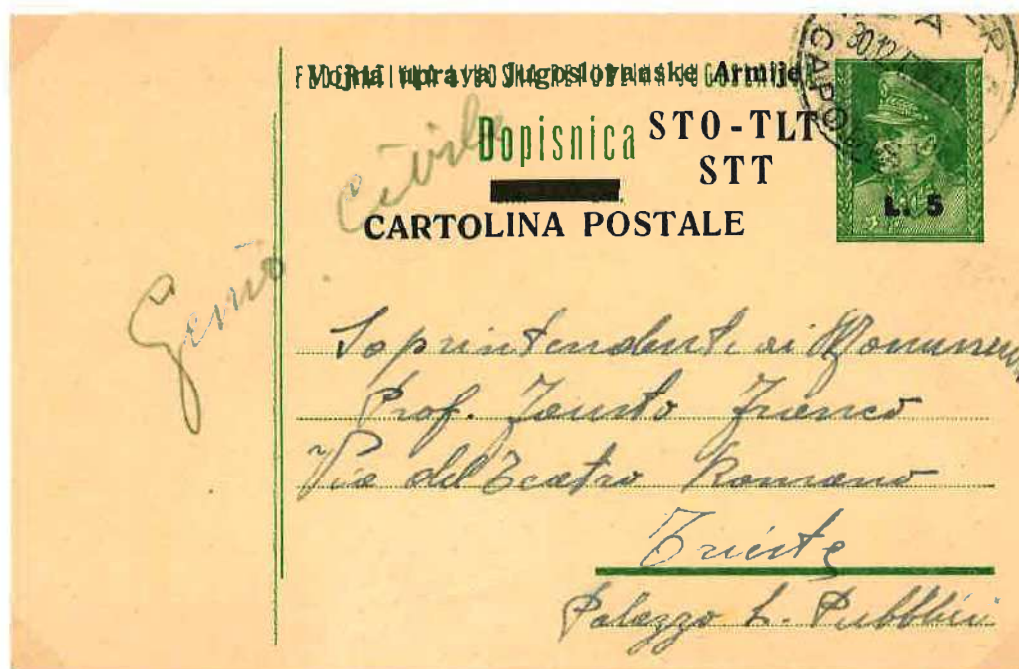 Vojna uprava Jugoslovanske Armije
Dopisnica STO-TLT
STT
CARTOLINA POSTALE
L. 5
30.12
CAPO
Genio Civile
Soprintendente ai Monumen
Prof. Fausto Franco
Via del Teatro Romano
Trieste
Palazzo L. Pubblici